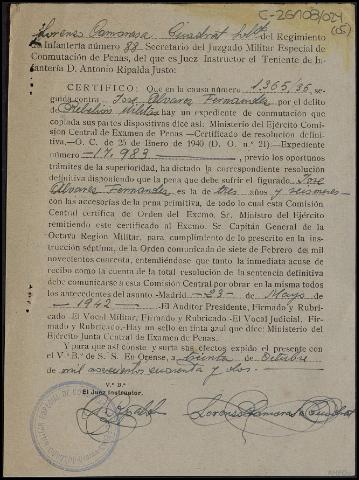 C-26108/024
(5)
Lorenzo Camarasa Cuadrat, Soldado del Regimiento
de Infantería número 88 Secretario del Juzgado Militar Especial de
Conmutación de Penas, del que es Juez Instructor el Teniente de In-
fantería D. Antonio Ripalda Justo:
CERTIFICO: Que en la causa número 1.365/36, se-
guida contra José Alvarez Fernandez por el delito
Rebelión Militar hay un expediente de conmutación que
copiada sus partes dispositivas dice así: Ministerio del Ejército Comi-
sión Central de Examen de Penas —Certificado de resolución defini-
tiva.—O. C. de 25 de Enero de 1940 (D. O. n.º 21).—Expediente
número —17.983—, previo los oportunos
trámites de la superioridad, ha dictado la correspondiente resolución
definitiva disponiendo que la pena que debe sufrir el figurado José
Alvarez Fernandez es la de tres años y
con las accesorias de la pena primitiva, de todo lo cual esta Comisión
Central certifica de Orden del Excmo. Sr. Ministro del Ejército
remitiendo este certificado al Excmo. Sr. Capitán General de la
Octava Región Militar, para cumplimento de lo prescrito en la ins-
trucción séptima, de la Orden comunicada de siete de Febrero de mil
novecientos cuarenta, entendiéndose que tanto la inmediata acuse
de recibo como la cuenta de la total resolución de la sentencia definitiva
debe comunicarse a esta Comisión Central por obrar en la misma todos
los antecedentes del asunto.-Madrid —23— de Mayo de
—1942— El Auditor Presidente, Firmado y Rubri-
cado.-El Vocal Militar, Firmado y Rubricado.-El Vocal Judicial, Fir-
mado y Rubricado.-Hay un sello en tinta azul que dice: Ministerio del
Ejército Junta Central de Examen de Penas.
Y para que así conste y surta sus efectos expido el presente con
el V.º B.º de S. S. En Orense, a treinta de Octubre
de mil novecientos cuarenta y dos.
V.º B.º
El Juez Instructor,
A. Ripalda
Lorenzo Camarasa Cuadrat